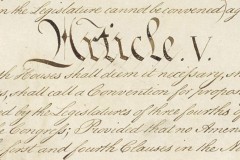 the Legislature cannot be convened) ag
Article. V.
Houses shall deem it necessary, sh
shall call a Convention for propos
by the Legislatures of three fourths of
Congress; Provided that no Amen
first and fourth Clauses in the N